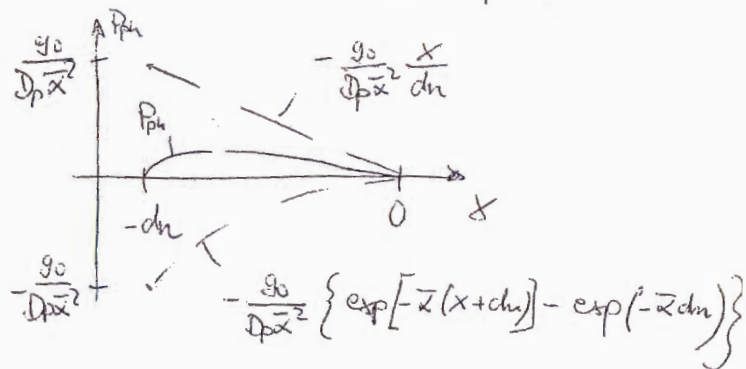 P_ph
g₀ / (D_p ᾱ²)
- g₀ / (D_p ᾱ²) x/dn
P_ph
-dn 0 x
- g₀ / (D_p ᾱ²)
- g₀ / (D_p ᾱ²) { exp[-ᾱ(x+dn)] - exp(-ᾱdn) }